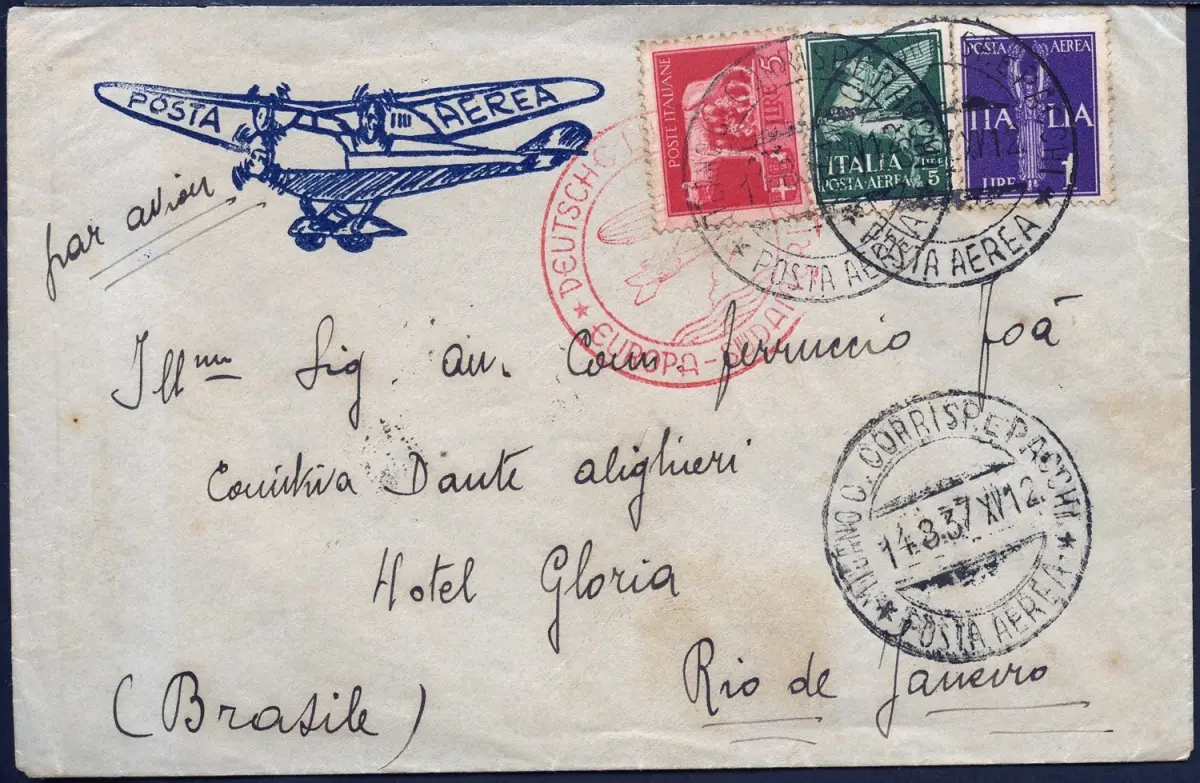 POSTA AEREA
par avion
POSTE ITALIANE
LIRE 5
ITALIA
LIRE 5
POSTA AEREA
POSTA AEREA
ITALIA
1
LIRE
POSTA AEREA
POSTA AEREA
DEUTSCHE
EUROPA - SÜDAM
Illmo Sig. av. Com. Ferruccio Foà
Comitiva Dante Alighieri
Hotel Gloria
Rio de Janeiro
(Brasile)
MILANO C. CORRISP. E PACCHI
14.8.37 XV 12
POSTA AEREA